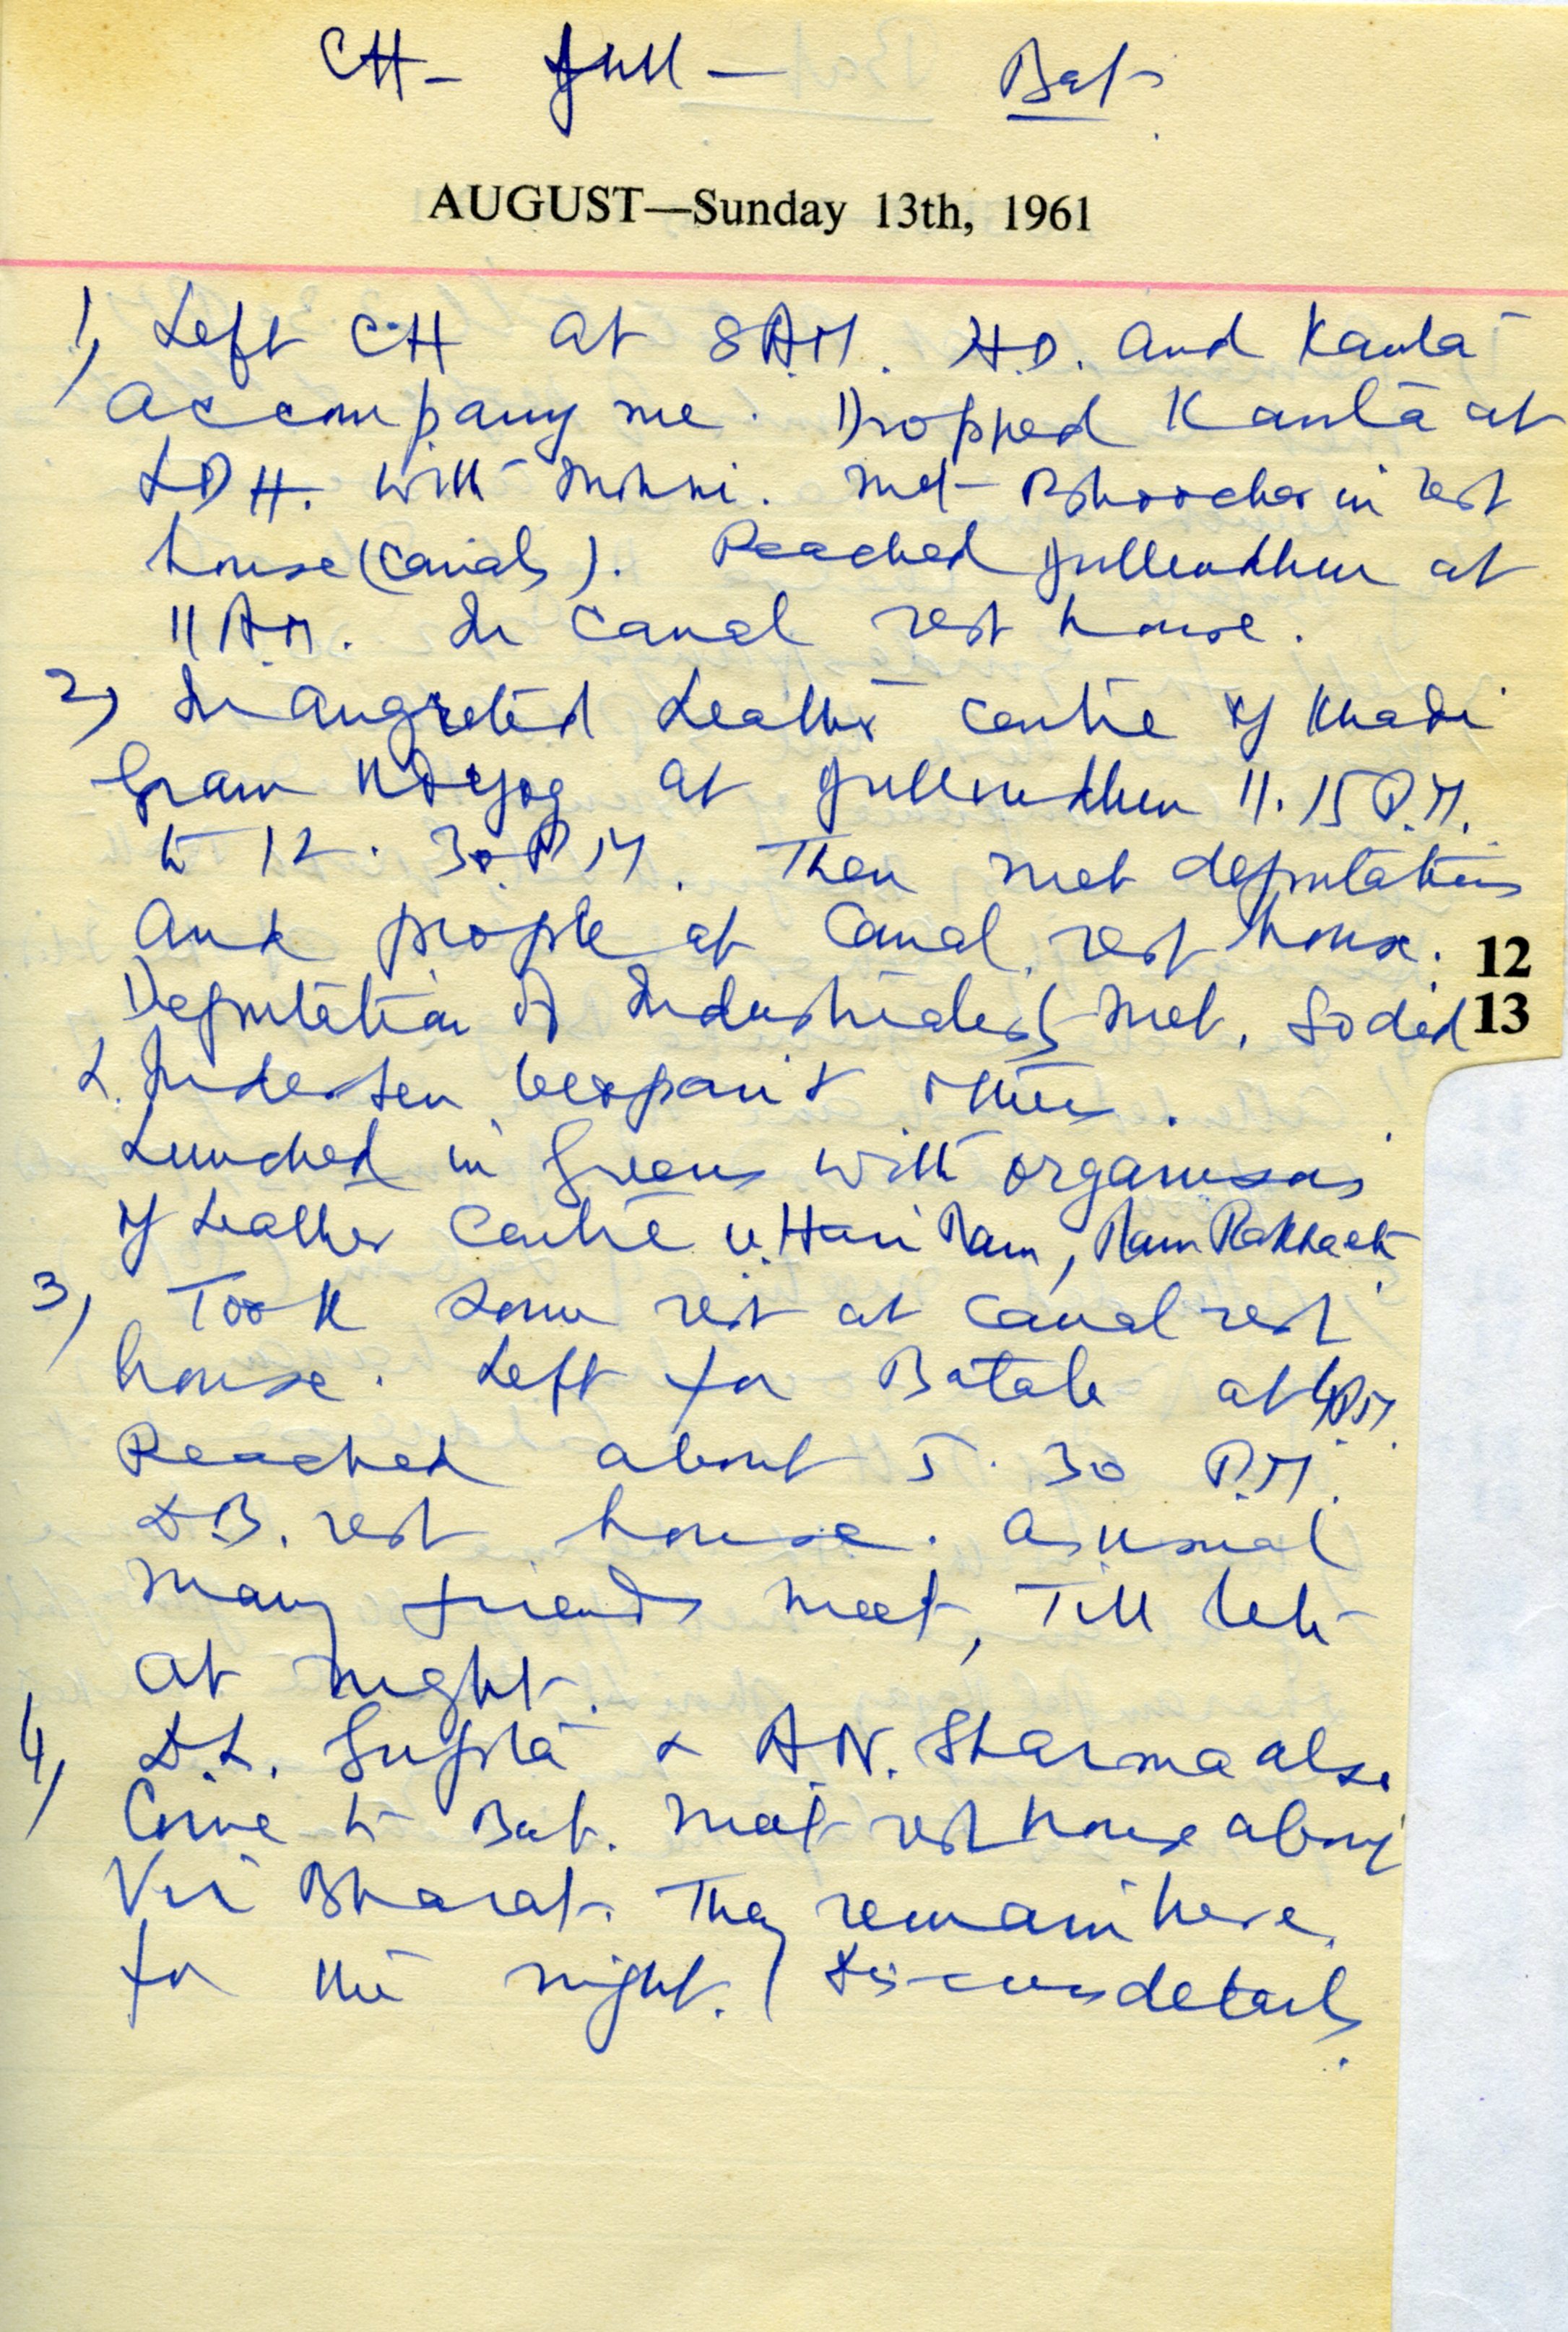 CH - Jull - Bat.
AUGUST—Sunday 13th, 1961
1) Left CH at 8 A.M. H.D. and Kanta
accompany me. Dropped Kanta at
LDH. with Minni. Met in rest
house (canals). Reached Jullundhur at
11 A.M. In canal rest house.
2) Inaugrated Leather centre of Khadi
Gram Udyog at Jullundhur 11.15 P.M.
to 12.30 P.M. Then met deputations
and people at Canal rest house. 12
Deputation of Industrialists met. So did 13
L. Inder Sen & others.
Lunched in Greens with organisors
of Leather Centre Hari Ram, Ram Rakhaek
3) Took some rest at canal rest
house. Left for Batala at 4 P.M.
Reached about 5.30 P.M.
D.B. rest house. As usual
many friends meet, Till late
at night.
4) D.L. Gupta & A.N. Sharma also
Come to Bat. Meet rest house along
Vir Bharat. They remain here
for the night. Discuss details.